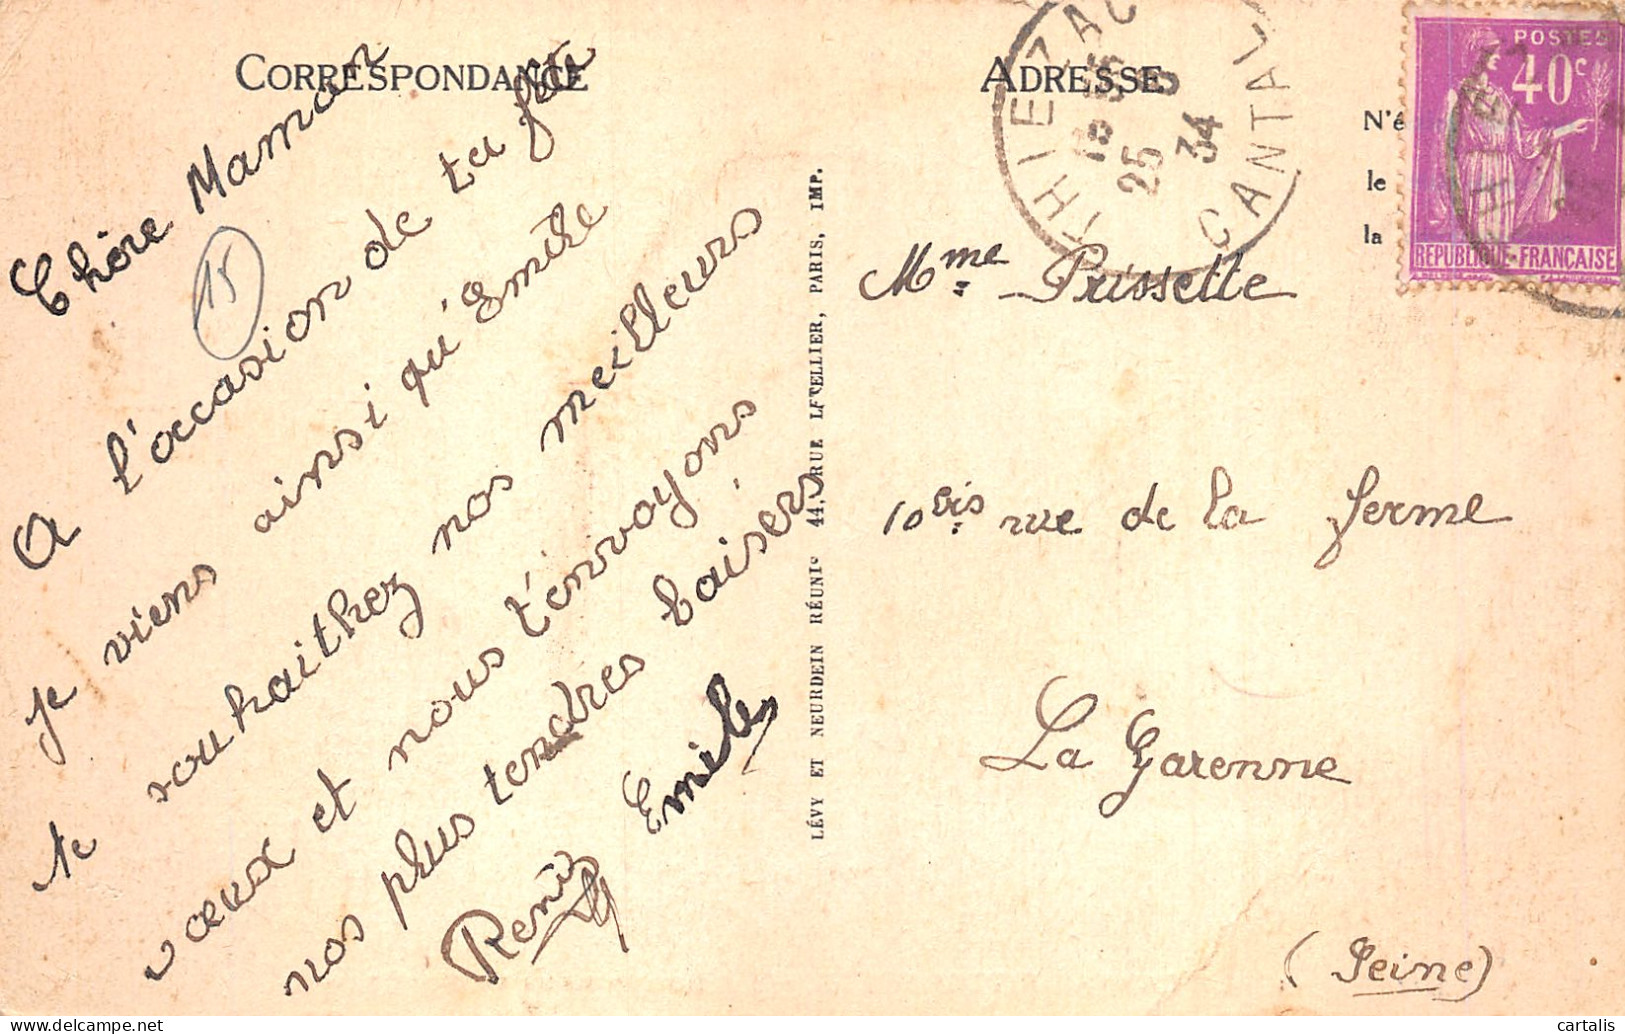 CORRESPONDANCE
Chère Maman
15
A l'occasion de ta fête
je viens ainsi qu'Emile
te souhaithez nos meilleurs
vœux et nous t'envoyons
nos plus tendres baisers
Emile
LÉVY ET NEURDEIN RÉUNIS 44, RUE LETELLIER, PARIS, IMP.
ADRESSE
THIEZAC
25
34
CANTAL
POSTES
40c
RÉPUBLIQUE-FRANÇAISE
N'é
le
la
Mme Prissette
10bis rue de la ferme
La Garenne
(Seine)
cartalis
delcampe.net